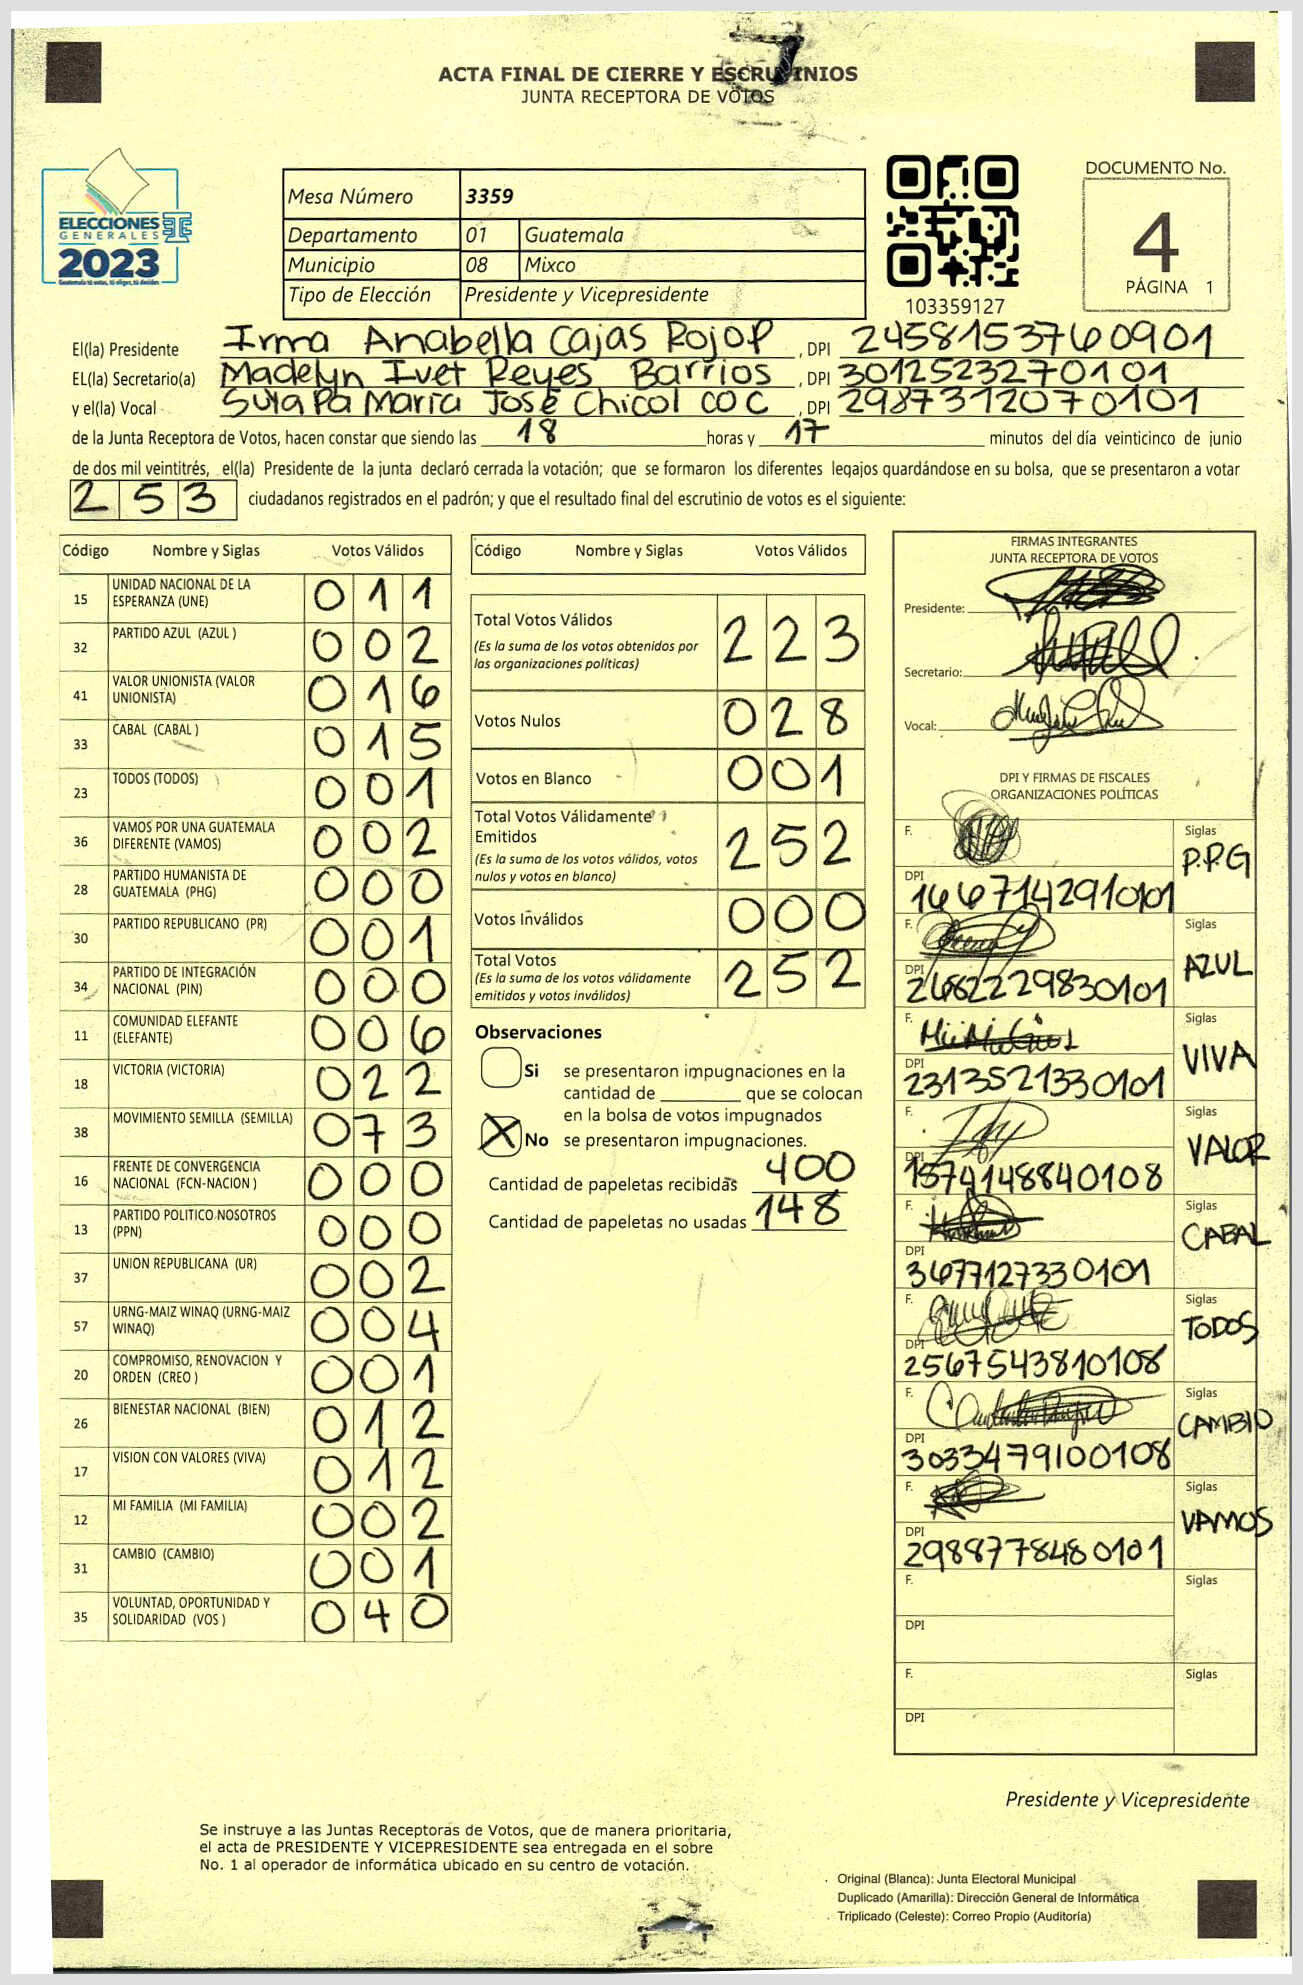 ACTA FINAL DE CIERRE Y ESCRUTINIOS
JUNTA RECEPTORA DE VOTOS
ELECCIONES
GENERALES
2023
Mesa Número 3359
Departamento 01 Guatemala
Municipio 08 Mixco
Tipo de Elección Presidente y Vicepresidente
103359127
DOCUMENTO No.
4
PÁGINA 1
El(la) Presidente Irma Anabella Cajas Rojop , DPI 2458153760901
EL(la) Secretario(a) Madelyn Ivet Reyes Barrios , DPI 3012523270101
y el(la) Vocal Sulapa María José Chicol COC , DPI 2987312070101
de la Junta Receptora de Votos, hacen constar que siendo las 18 horas y 17 minutos del día veinticinco de junio
de dos mil veintitrés, el(la) Presidente de la junta declaró cerrada la votación; que se formaron los diferentes legajos guardándose en su bolsa, que se presentaron a votar
253 ciudadanos registrados en el padrón; y que el resultado final del escrutinio de votos es el siguiente:
Código Nombre y Siglas Votos Válidos
15 UNIDAD NACIONAL DE LA ESPERANZA (UNE) 011
32 PARTIDO AZUL (AZUL ) 002
41 VALOR UNIONISTA (VALOR UNIONISTA) 016
33 CABAL (CABAL ) 015
23 TODOS (TODOS) 001
36 VAMOS POR UNA GUATEMALA DIFERENTE (VAMOS) 002
28 PARTIDO HUMANISTA DE GUATEMALA (PHG) 000
30 PARTIDO REPUBLICANO (PR) 001
34 PARTIDO DE INTEGRACIÓN NACIONAL (PIN) 000
11 COMUNIDAD ELEFANTE (ELEFANTE) 006
18 VICTORIA (VICTORIA) 022
38 MOVIMIENTO SEMILLA (SEMILLA) 073
16 FRENTE DE CONVERGENCIA NACIONAL (FCN-NACION ) 000
13 PARTIDO POLITICO NOSOTROS (PPN) 000
37 UNION REPUBLICANA (UR) 002
57 URNG-MAIZ WINAQ (URNG-MAIZ WINAQ) 004
20 COMPROMISO, RENOVACION Y ORDEN (CREO ) 001
26 BIENESTAR NACIONAL (BIEN) 012
17 VISION CON VALORES (VIVA) 012
12 MI FAMILIA (MI FAMILIA) 002
31 CAMBIO (CAMBIO) 001
35 VOLUNTAD, OPORTUNIDAD Y SOLIDARIDAD (VOS ) 040
Código Nombre y Siglas Votos Válidos
Total Votos Válidos 223
(Es la suma de los votos obtenidos por
las organizaciones políticas)
Votos Nulos 028
Votos en Blanco 001
Total Votos Válidamente
Emitidos 252
(Es la suma de los votos válidos, votos
nulos y votos en blanco)
Votos Inválidos 000
Total Votos 252
(Es la suma de los votos válidamente
emitidos y votos inválidos)
Observaciones
Si se presentaron impugnaciones en la
cantidad de ________ que se colocan
en la bolsa de votos impugnados
X No se presentaron impugnaciones.
Cantidad de papeletas recibidas 400
Cantidad de papeletas no usadas 148
FIRMAS INTEGRANTES
JUNTA RECEPTORA DE VOTOS
Presidente:
Secretario:
Vocal:
DPI Y FIRMAS DE FISCALES
ORGANIZACIONES POLÍTICAS
F. Siglas P.P.G
DPI 1667142910101
F. Siglas AZUL
DPI 2682229830101
F. Siglas VIVA
DPI 2313521330101
F. Siglas VALOR
DPI 1574148840108
F. Siglas CABAL
DPI 3677127330101
F. Siglas TODOS
DPI 2567543810108
F. Siglas CAMBIO
DPI 3033479100108
F. Siglas VAMOS
DPI 2988778480101
F. Siglas
DPI
F. Siglas
DPI
Presidente y Vicepresidente
Se instruye a las Juntas Receptoras de Votos, que de manera prioritaria,
el acta de PRESIDENTE Y VICEPRESIDENTE sea entregada en el sobre
No. 1 al operador de informática ubicado en su centro de votación.
Original (Blanca): Junta Electoral Municipal
Duplicado (Amarilla): Dirección General de Informática
Triplicado (Celeste): Correo Propio (Auditoría)